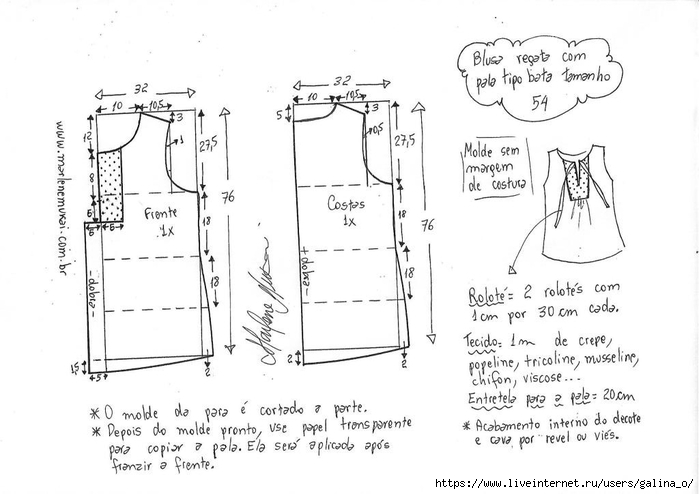 Blusa regata com
pala tipo bata tamanho
54
32
10
10,5
3
12
1
27,5
8
6
6
6
Frente
1x
76
18
18
-dobra-
1,5
5
2
www.marlenemukai.com.br
32
10
10,5
5
3
0,5
27,5
Costas
1x
76
18
18
+dobra-
2
2
Marlene Mukai
Molde sem
margem
de costura
Roloté = 2 rolotés com
1cm por 30cm cada.
Tecido: 1m de crepe,
popeline, tricoline, musseline,
chifon, viscose...
Entretela para a pala = 20cm
* Acabamento interno do decote
e cava por revel ou viés.
* O molde da para é cortado a parte.
* Depois do molde pronto, use papel transparente
para copiar a pala. Ela será aplicada após
franzir a frente.
https://www.liveinternet.ru/users/galina_o/